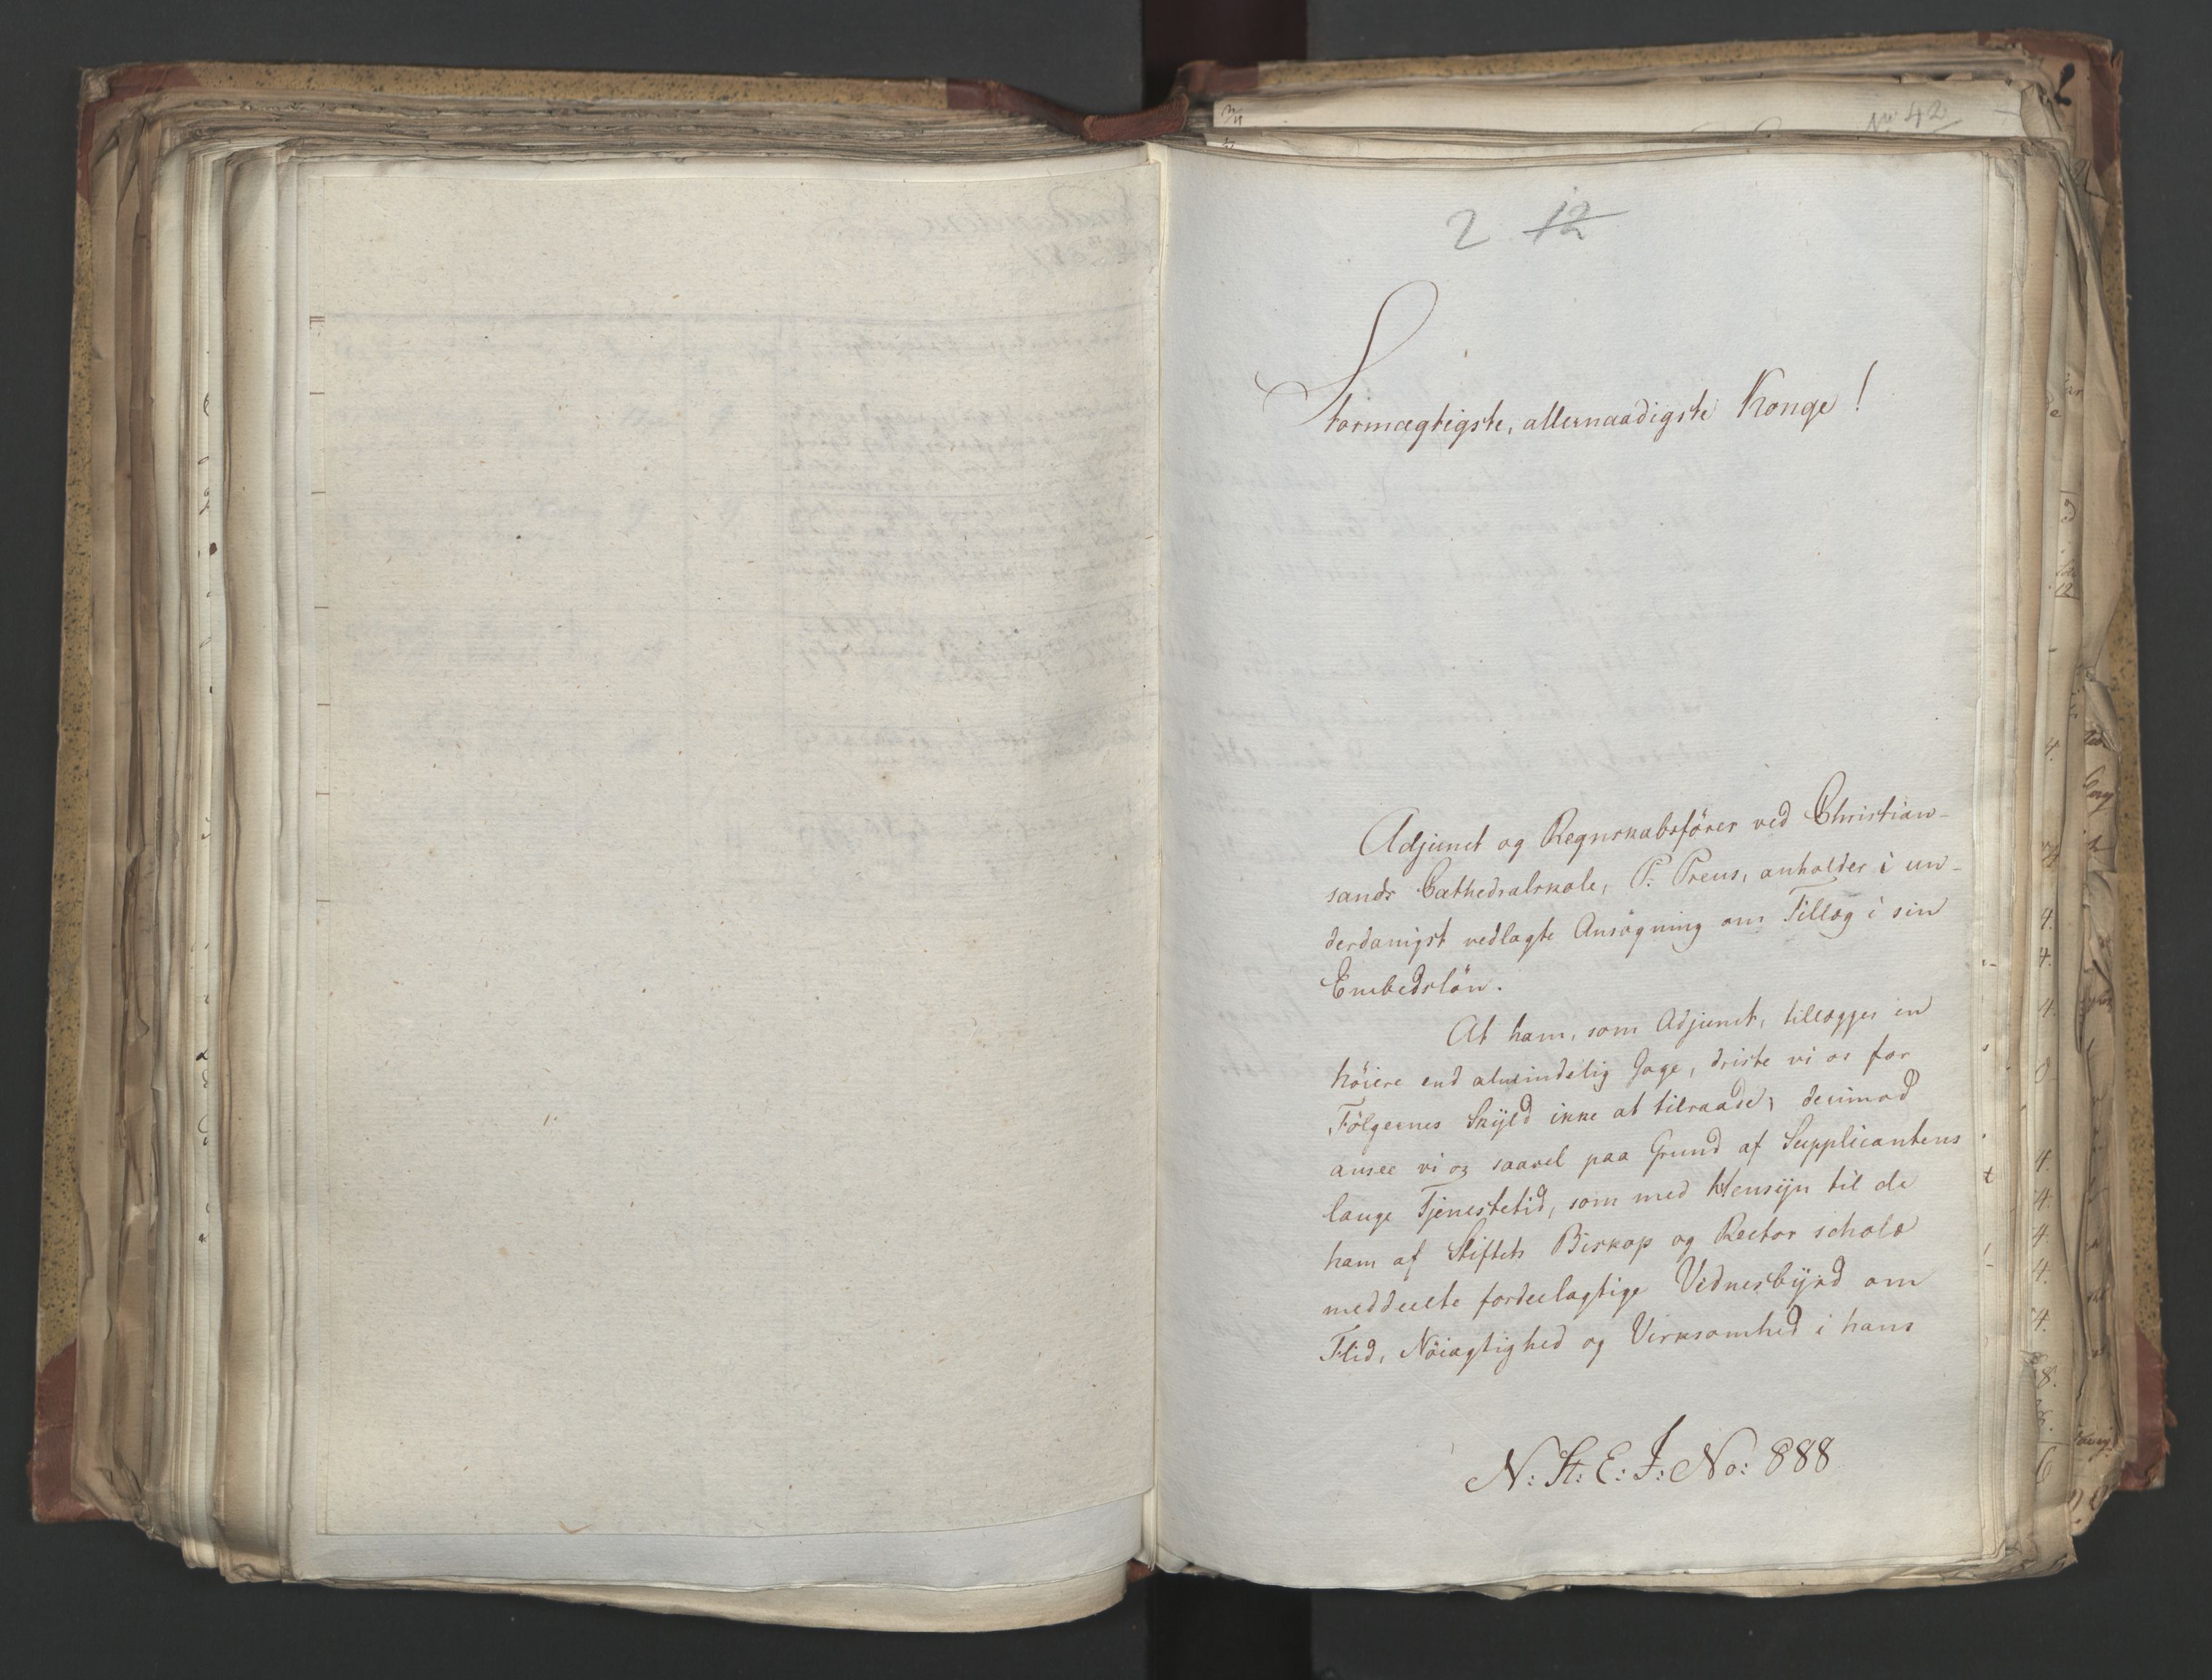 No 42
2 12
Stormægtigste, allernaadigste Konge!
Adjunct og Regnskabsfører ved Christian-
sands Cathedralskole, P. Preus, anholder i un-
derdanigst vedlagte Ansøgning om Tillæg i sin
Embedsløn.
At ham, som Adjunct, tillægges en
høiere end almindelig Gage, driste vi os for
Følgernes Skÿld ikke at tilraade; derimod
ansee vi os saavel paa Grund af Supplicantens
lange Tjenestetid, som med Hensÿn til de
ham af Stiftets Biskop og Rector scholæ
meddeelte fordeelagtige Vidnesbÿrd om
Flid, Nøiagtighed og Virksomhed i hans
N: St: E: J: No: 888